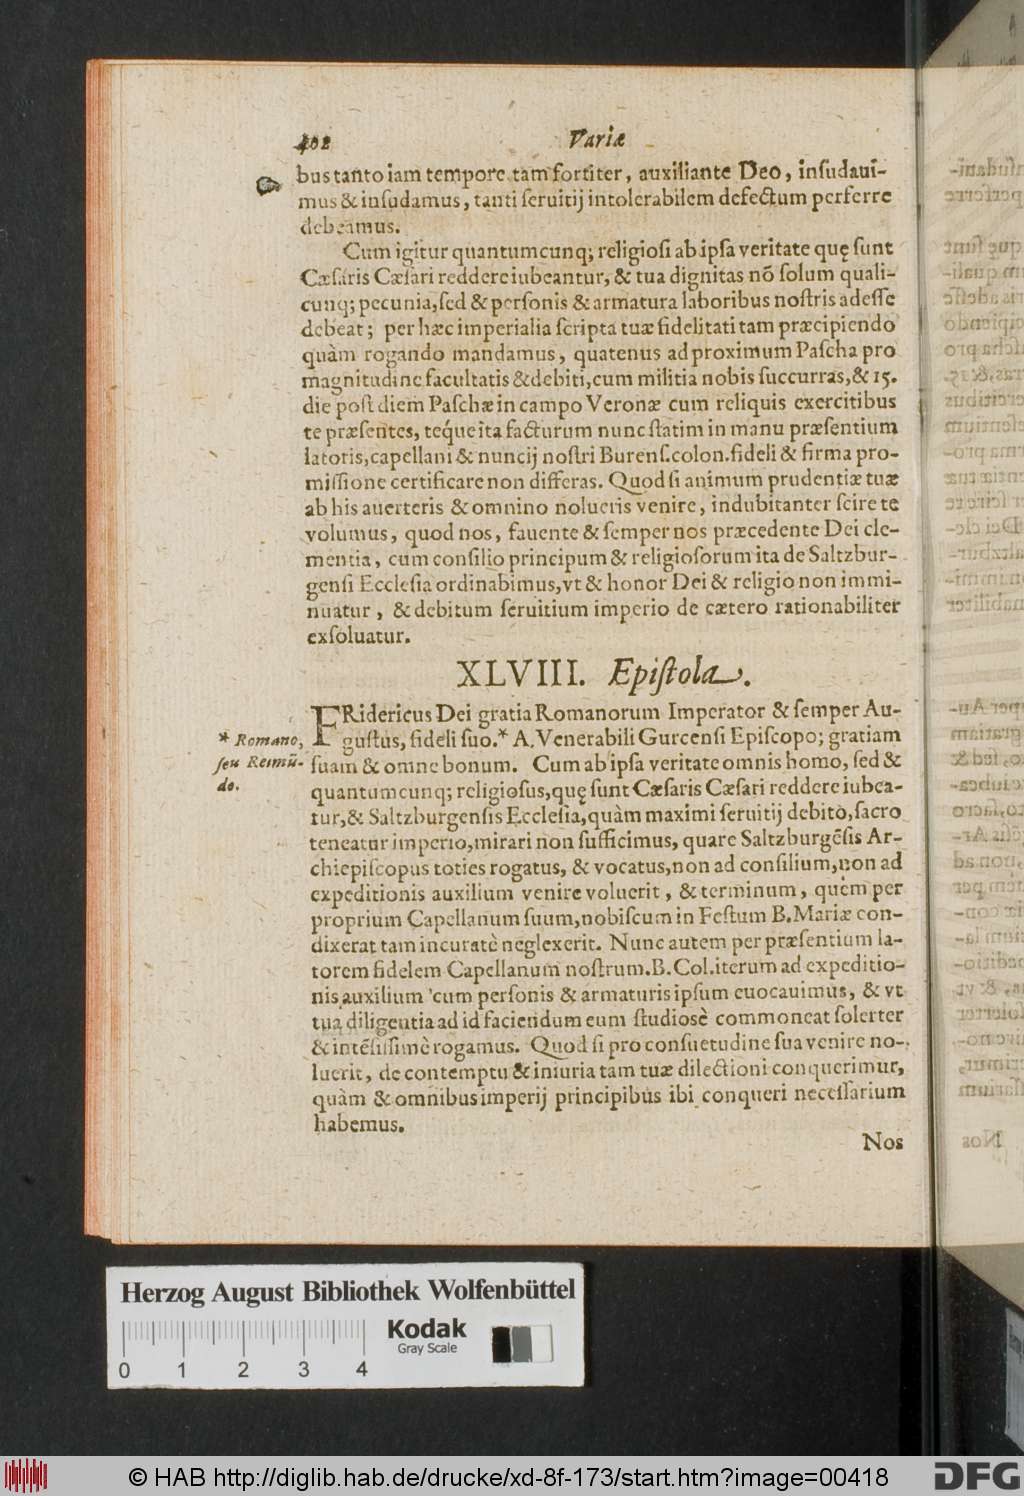 402 Variæ
bus tanto iam tempore tam fortiter, auxiliante Deo, insudaui-
mus & insudamus, tanti seruitij intolerabilem defectum perferre
debeamus.
Cum igitur quantumcunq; religiosi ab ipsa veritate quę sunt
Cæsaris Cæsari reddere iubeantur, & tua dignitas nõ solum quali-
cunq; pecunia, sed & personis & armatura laboribus nostris adesse
debeat; per hæc imperialia scripta tuæ fidelitati tam præcipiendo
quàm rogando mandamus, quatenus ad proximum Pascha pro
magnitudine facultatis & debiti, cum militia nobis succurras, & 15.
die post diem Paschæ in campo Veronæ cum reliquis exercitibus
te præsentes, teq́ue ita facturum nunc statim in manu præsentium
latoris, capellani & nuncij nostri Burens. colon. fideli & firma pro-
missione certificare non differas. Quod si animum prudentiæ tuæ
ab his auerteris & omnino nolueris venire, indubitanter scire te
volumus, quod nos, fauente & semper nos præcedente Dei cle-
mentia, cum consilio principum & religiosorum ita de Saltzbur-
gensi Ecclesia ordinabimus, vt & honor Dei & religio non immi-
nuatur, & debitum seruitium imperio de cætero rationabiliter
exsoluatur.
XLVIII. Epistola.
FRidericus Dei gratia Romanorum Imperator & semper Au-
gustus, fideli suo.* A. Venerabili Gurcensi Episcopo; gratiam
* Romano,
seu Reimũ-
do.
suam & omne bonum. Cum ab ipsa veritate omnis homo, sed &
quantumcunq; religiosus, quę sunt Cæsaris Cæsari reddere iubea-
tur, & Saltzburgensis Ecclesia, quàm maximi seruitij debito, sacro
teneatur imperio, mirari non sufficimus, quare Saltzburgẽsis Ar-
chiepiscopus toties rogatus, & vocatus, non ad consilium, non ad
expeditionis auxilium venire voluerit, & terminum, quem per
proprium Capellanum suum, nobiscum in Festum B. Mariæ con-
dixerat tam incuratè neglexerit. Nunc autem per præsentium la-
torem fidelem Capellanum nostrum. B. Col. iterum ad expeditio-
nis auxilium cum personis & armaturis ipsum euocauimus, & vt
tua diligentia ad id faciendum eum studiosè commoneat solerter
& intẽsissimè rogamus. Quod si pro consuetudine sua venire no-
luerit, de contemptu & iniuria tam tuæ dilectioni conquerimur,
quàm & omnibus imperij principibus ibi conqueri necessarium
habemus.
Nos
Herzog August Bibliothek Wolfenbüttel
0 1 2 3 4
Kodak
Gray Scale
© HAB http://diglib.hab.de/drucke/xd-8f-173/start.htm?image=00418
DFG